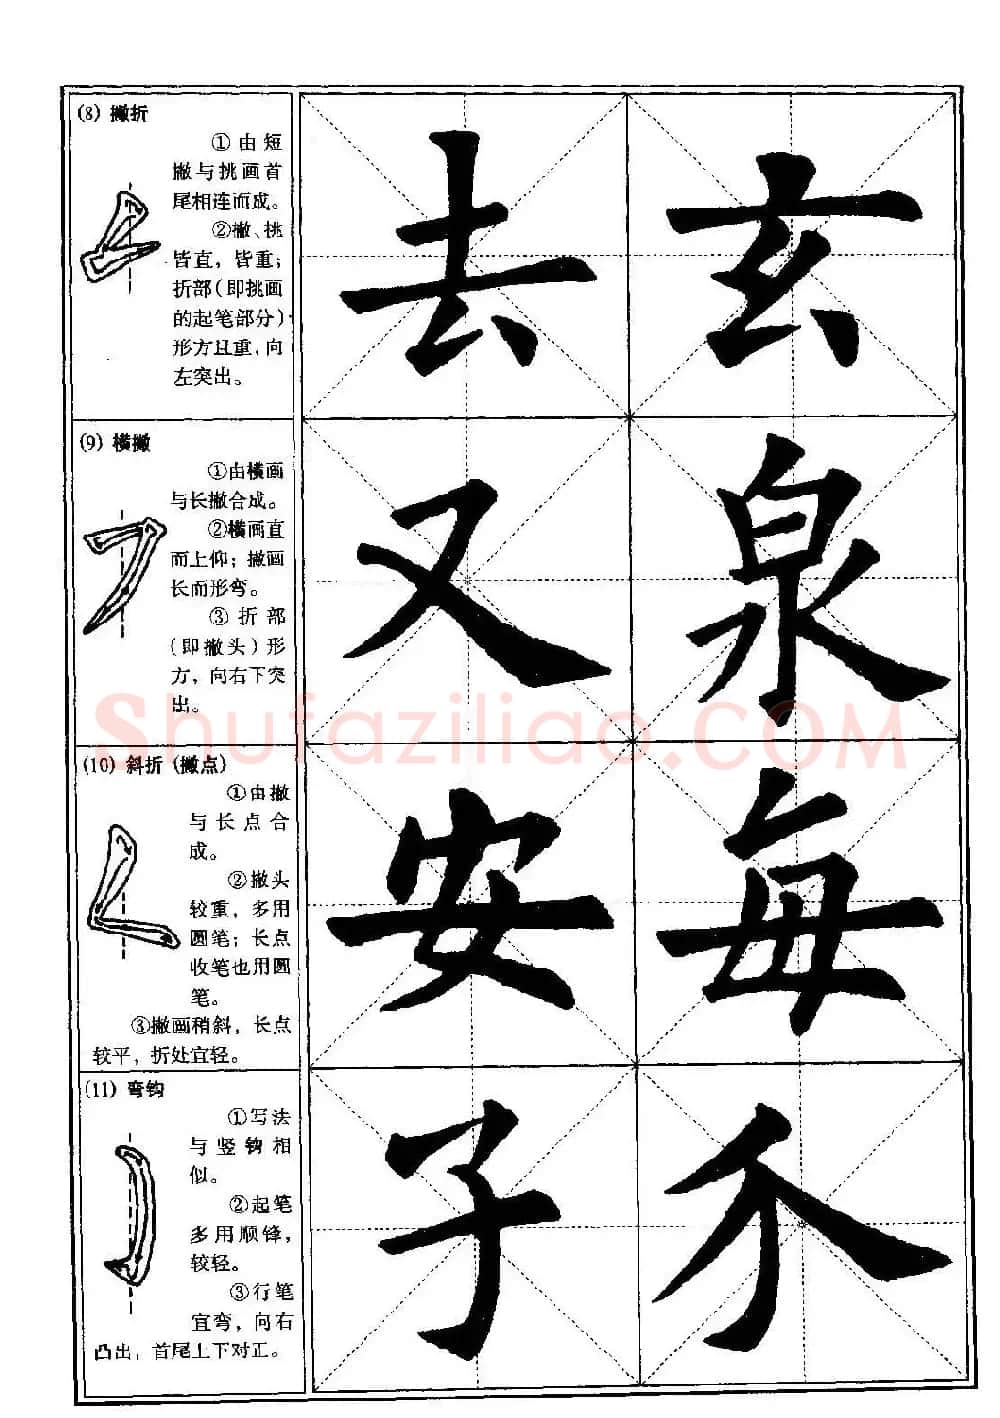 (8) 撇折
①由短
撇与挑画首
尾相连而成。
②撇、挑
皆直，皆重；
折部(即挑画
的起笔部分)
形方且重，向
左突出。
去 玄
(9) 横撇
①由横画
与长撇合成。
②横画直
而上仰；撇画
长而形弯。
③折部
(即撇头)形
方，向右下突
出。
又 泉
Shufaziliao.COM
(10) 斜折 (撇点)
①由撇
与长点合
成。
②撇头
较重，多用
圆笔；长点
收笔也用圆
笔。
③撇画稍斜，长点
较平，折处宜轻。
安 每
(11) 弯钩
①写法
与竖钩相
似。
②起笔
多用顺锋，
较轻。
③行笔
宜弯，向右
凸出，首尾上下对正。
子